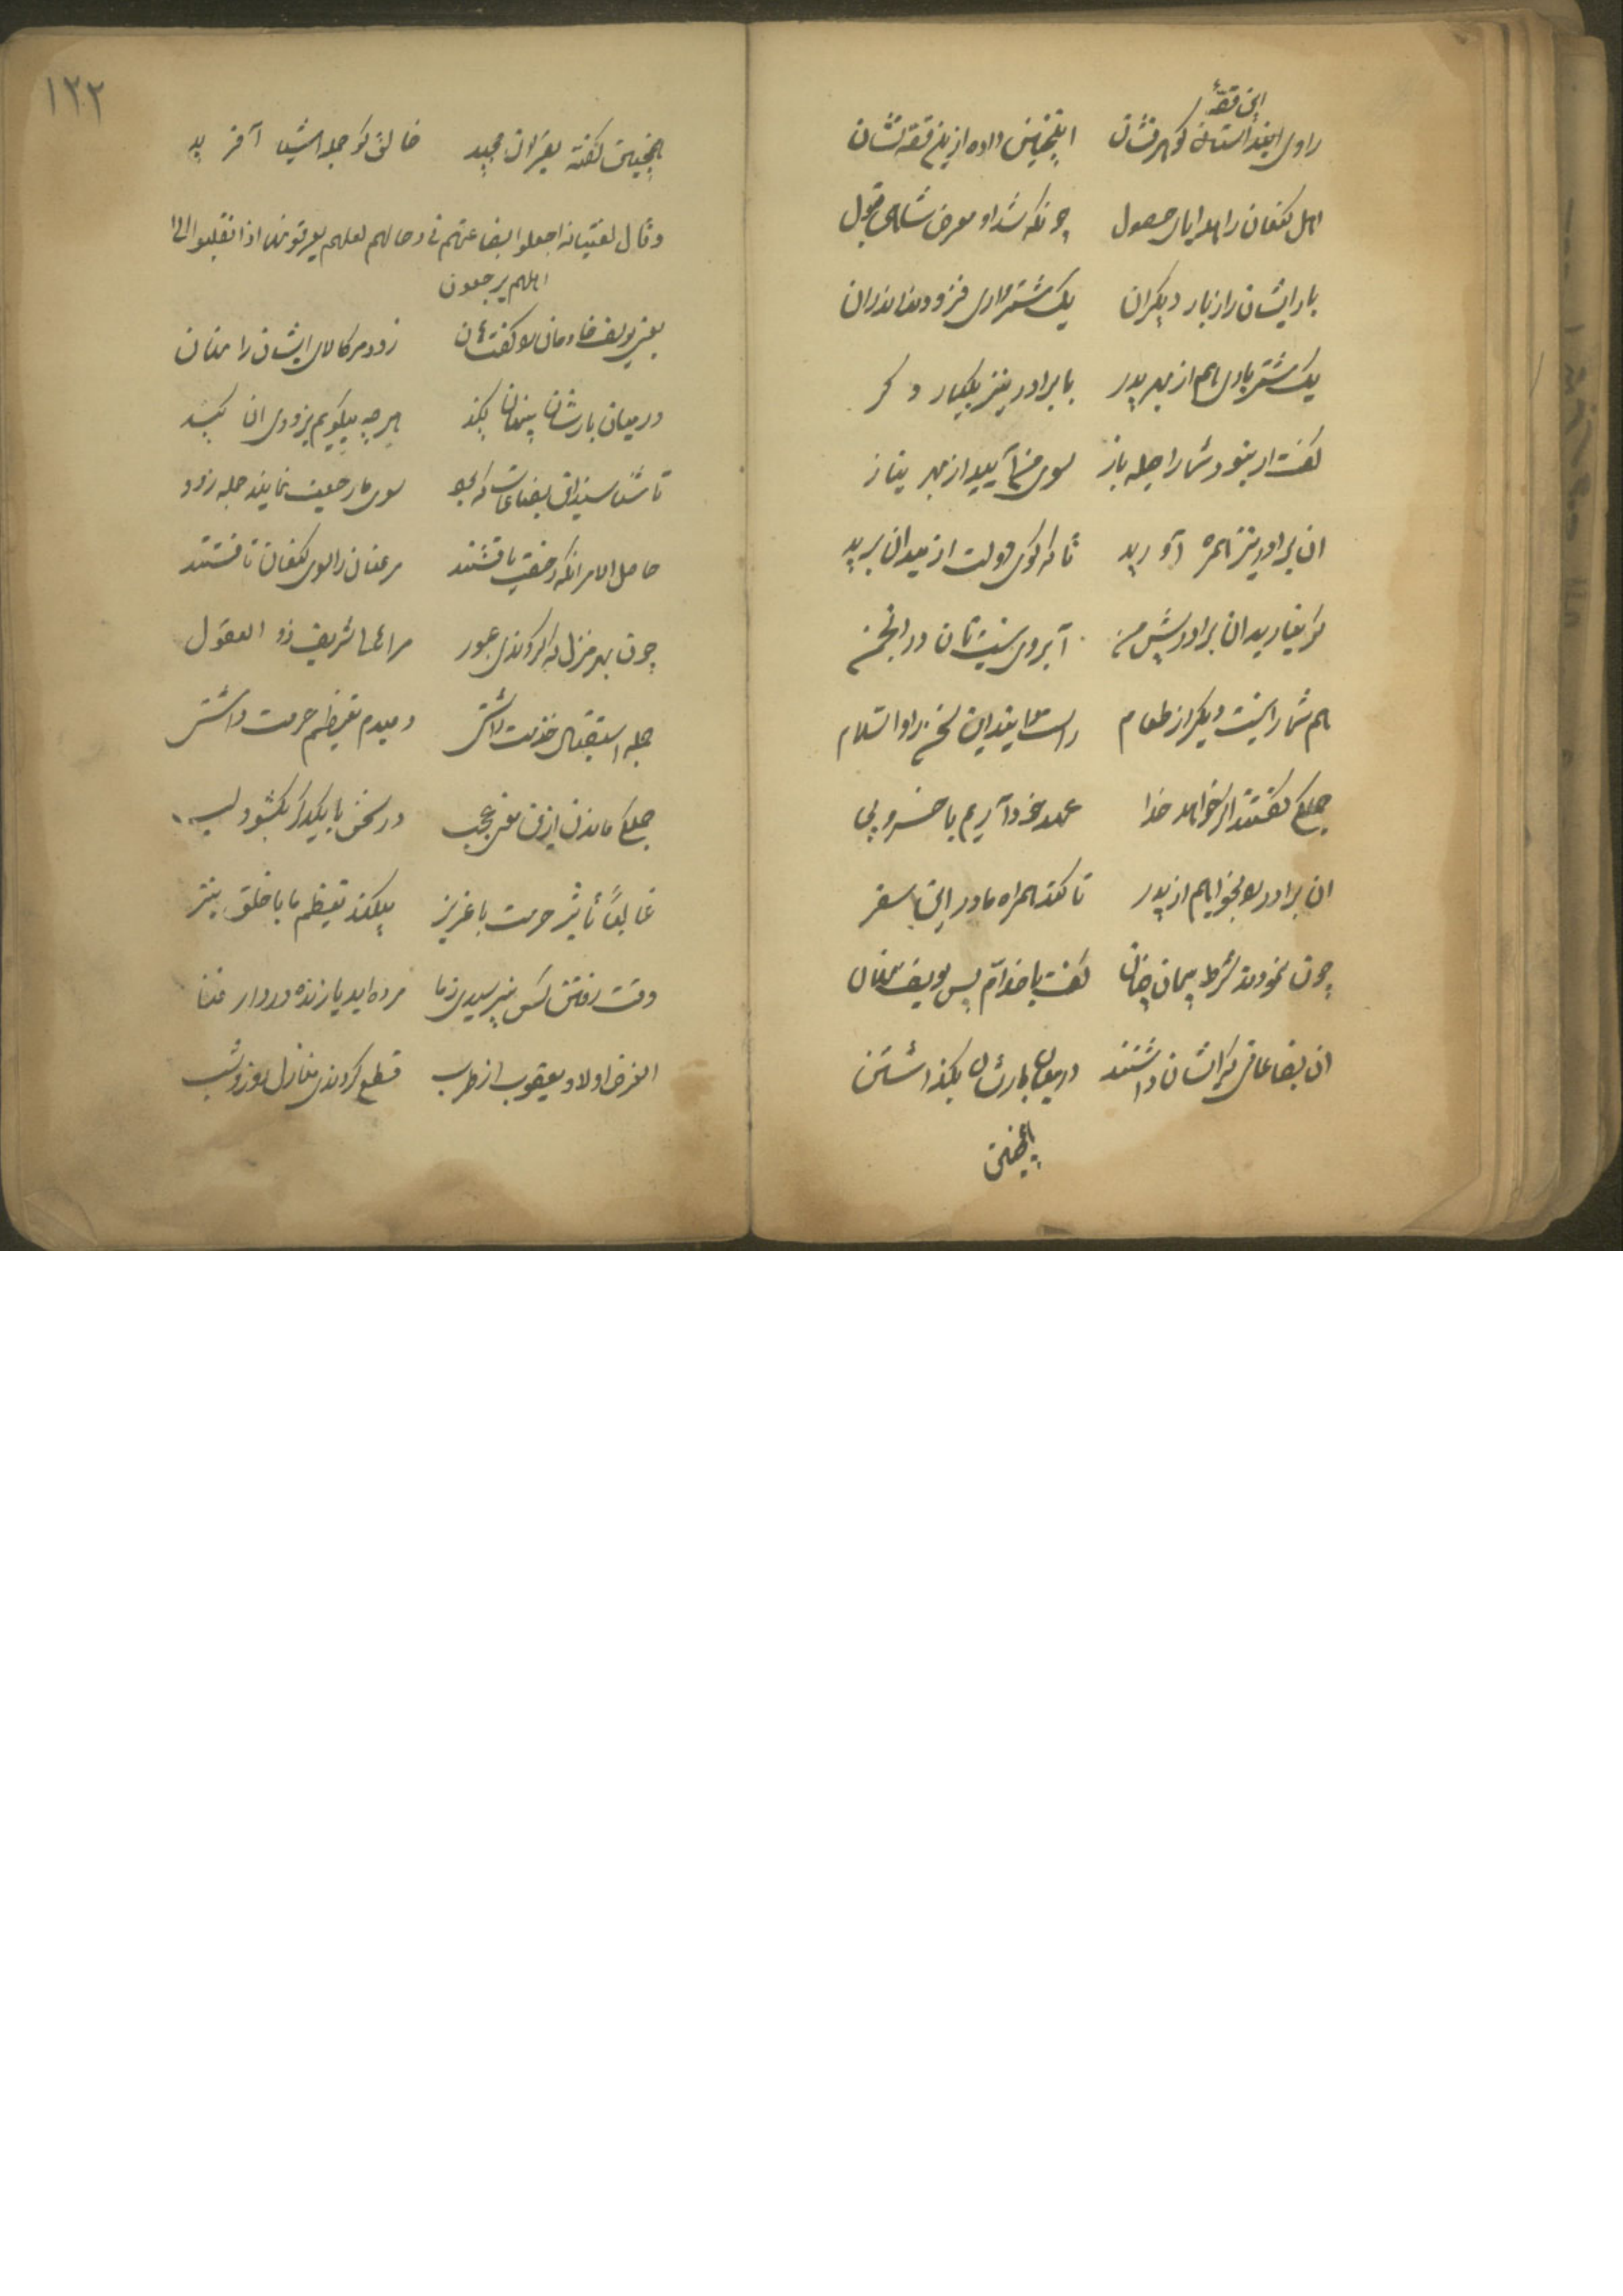 این قصهٔ
راوی اینداستان گوهر فشان اینچنین داده ازین قصه نشان
اهل کنعان را هدایای حصول چونکه شد او معرض شاهی قبول
بار ایشان را ز بار دیگران یک شتر باری فزودند اندران
یک شتر باری هم از بهر پدر با برادر نیز یکبار دگر
گفت ار بنود شما را جمله باز سوی من آیید از بهر نیاز
ان برادر نیز همره آورید تا که گوی دولت از میدان برید
گر نیارید ان برادر پیش من آبروی نیست تان در انجمن
هم شما را نیست دیگر از طعام راست اینداین سخن را والسلام
جملگی گفتند اگر خواهد خدا عهد خود آریم با خسرو بجا
ان برادر را بخواهیم از پدر تا کند همراه ما در این سفر
چون نمودند شرط پیمان چنان گفت با خدام پس یوسف نهان
ان بضاعاتی که ایشان داشتند در میان بارشان بگذاشتند
اینچنین
۱۲۲
اینچنین گفته بقران مجید خالق کو جمله اشیا آفرید
وقال لفتیانه اجعلوا بضاعتهم فی رحالهم لعلهم یعرفونها اذا انقلبوا الی
اهلهم یرجعون
یعنی یوسف خادمان را گفت هان زود مر کالای ایشان را نهان
در میان بارشان پنهان کنید هر چه میگویم بزودی ان کنید
تا شناسند ان بضاعات که بود سوی ما رجعت نمایند جمله زود
حاصل الامر انکه رخصت یافتند مر عنان را سوی کنعان تافتند
چون بهر منزل که کردندی عبور مر شریف ذو العقول
جمله استقبال خدمت داشتی دمبدم تعظیم حرمت داشتی
جملگی ماندن ازین معنی عجب در سخن با یکدگر بکشود لب
غالباً تأثیر حرمت با عزیز میکند تعظیم ما با خلق نیز
وقت رفتن کس نپرسیدی ز ما مرده اید یا زنده در دار فنا
الغرض اولاد یعقوب از طرب قطع کردندی منازل روز و شب